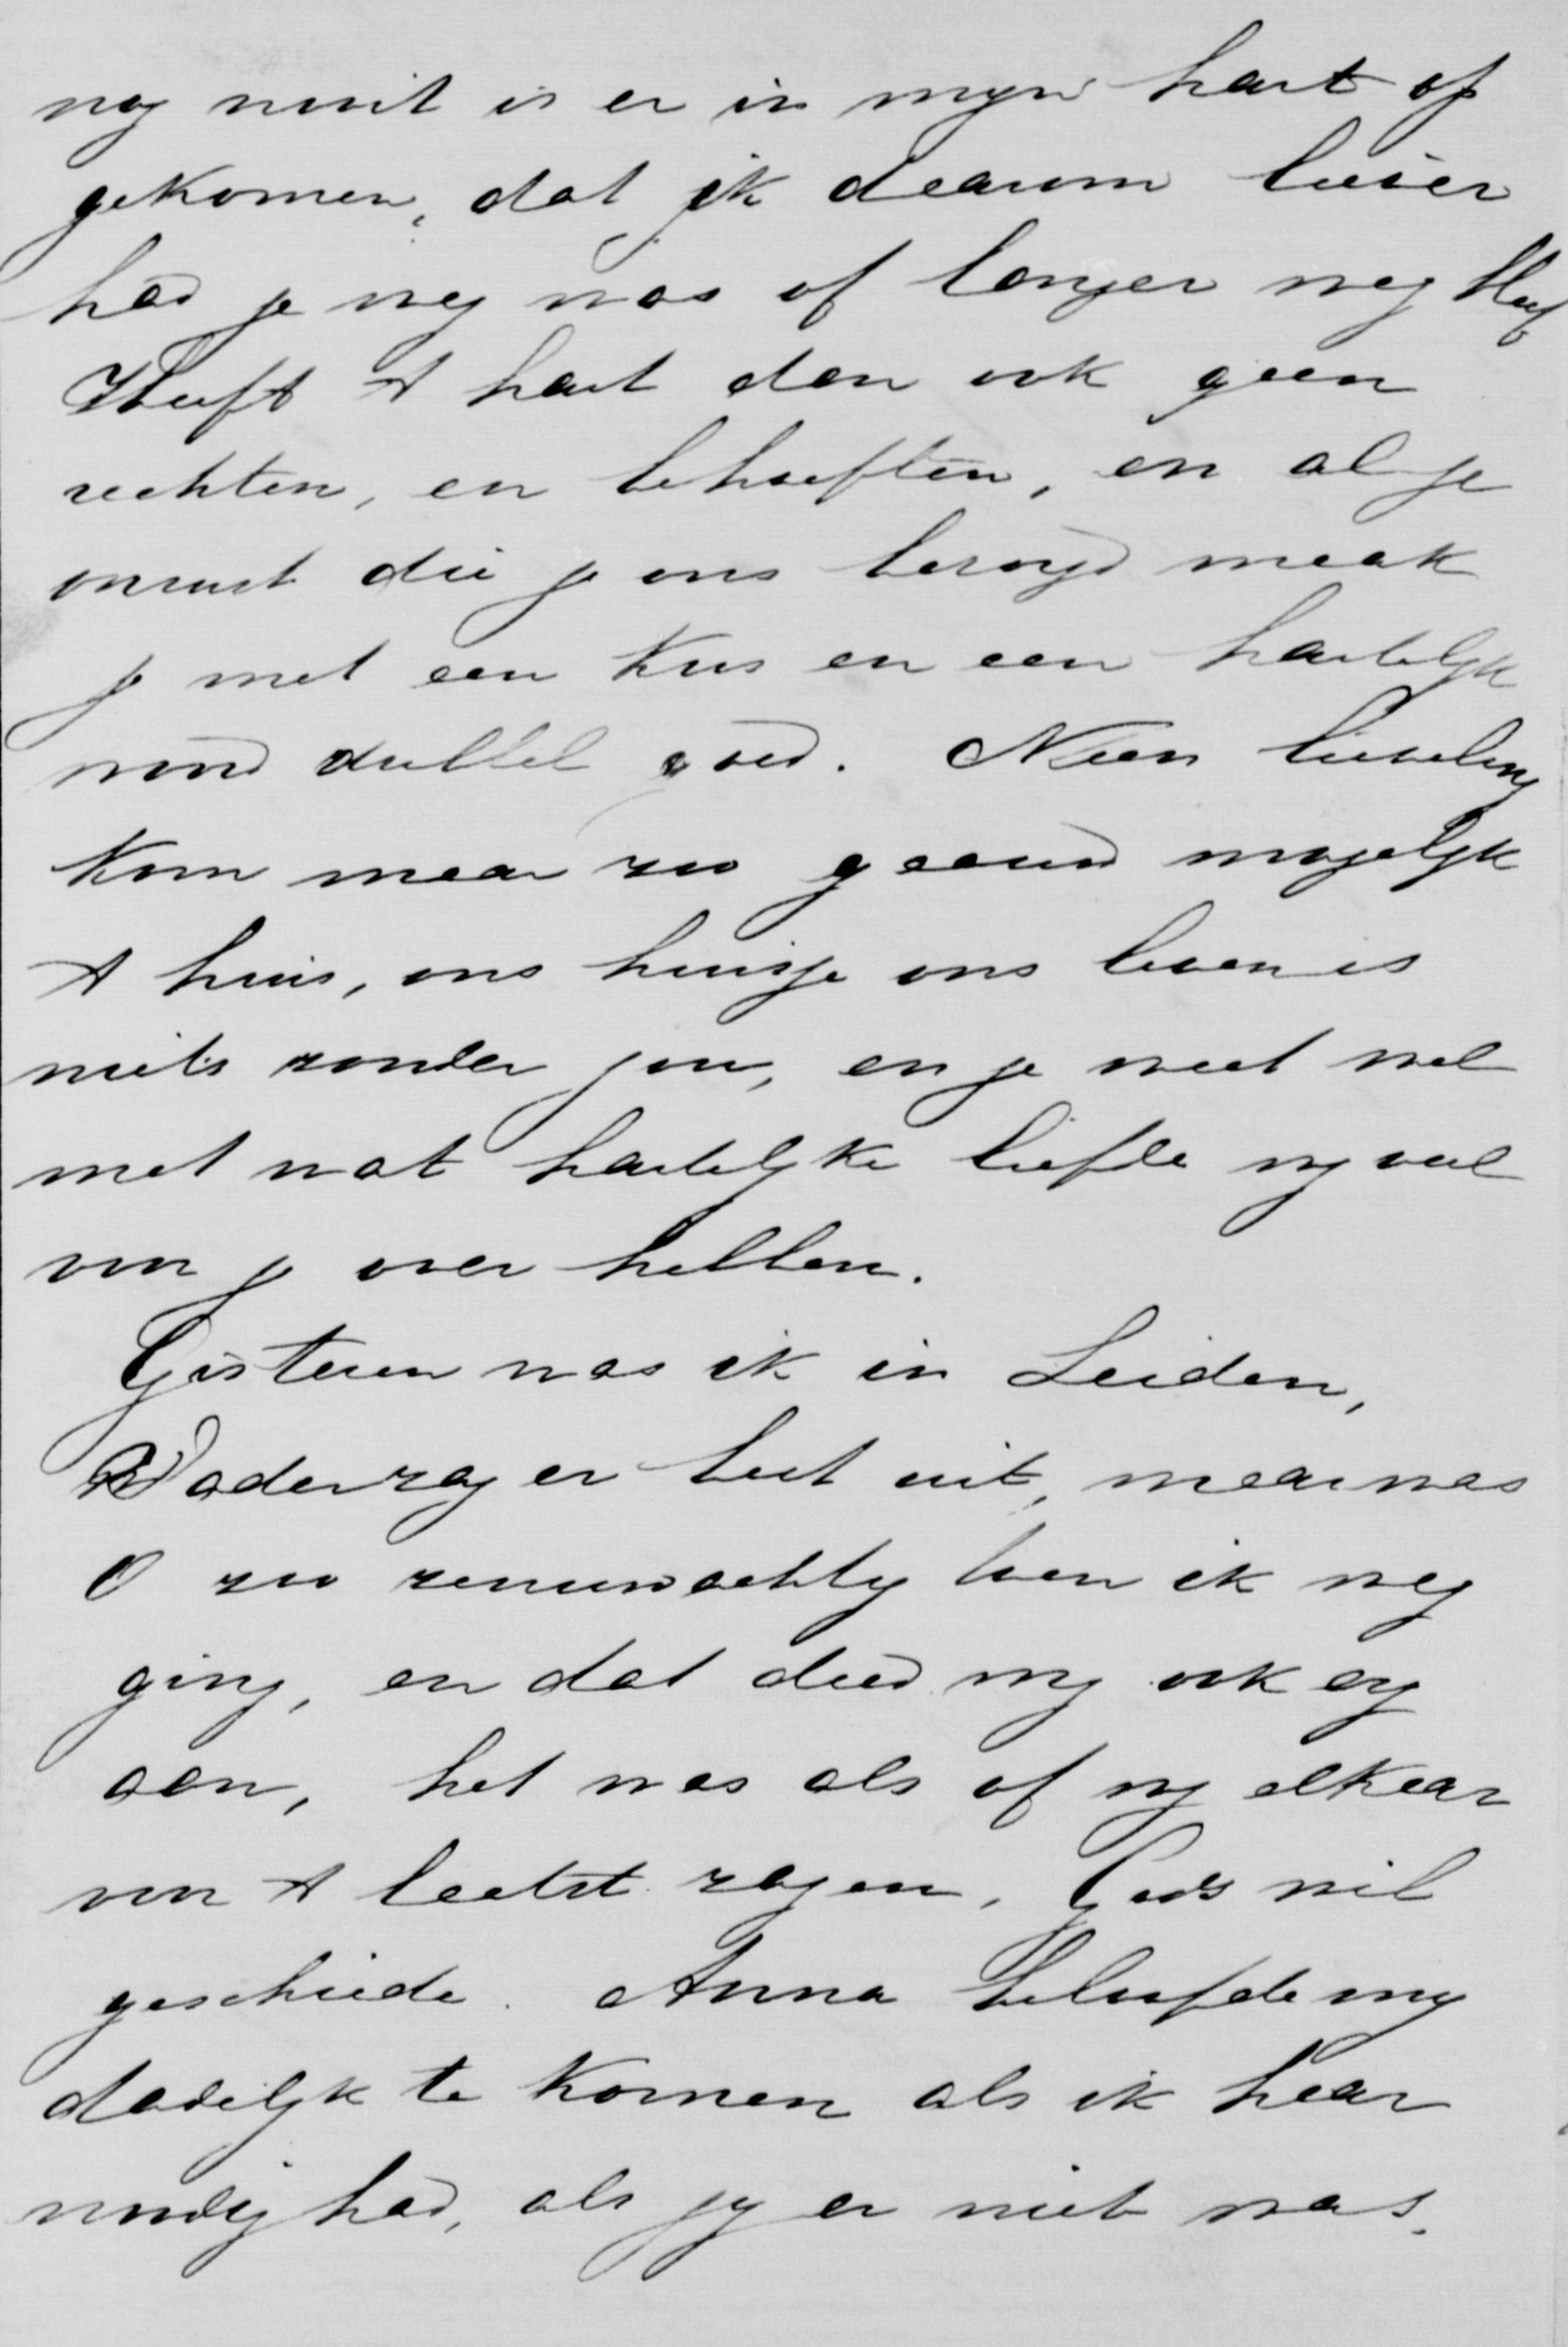 nog nooit is er in mijn hart op
gekomen, dat ik daarom liever
had je weg was of langer weg bleef
Heeft 't hart dan ook geen
rechten, en behoeften, en al je
onrust die je ons bezorgd maak
je met een kus en een hartelijk
woord dubbel goed. Neen lieveling
kom maar zoo gaauw mogelijk
t huis, ons huisje ons leven is
niets zonder jou, en je weet wel
met wat hartelijke liefde wij veel
voor je over hebben.
Gisteren was ik in Leiden,
Vader zag er best uit, maar was
O zoo zenuwachtig toen ik weg
ging, en dat deed mij ook erg
aan, het was als of wij elkaar
voor t laatst zagen. Gods wil
geschiede. Anna beloofde mij
dadelijk te komen als ik haar
noodig had, als jij er niet was.